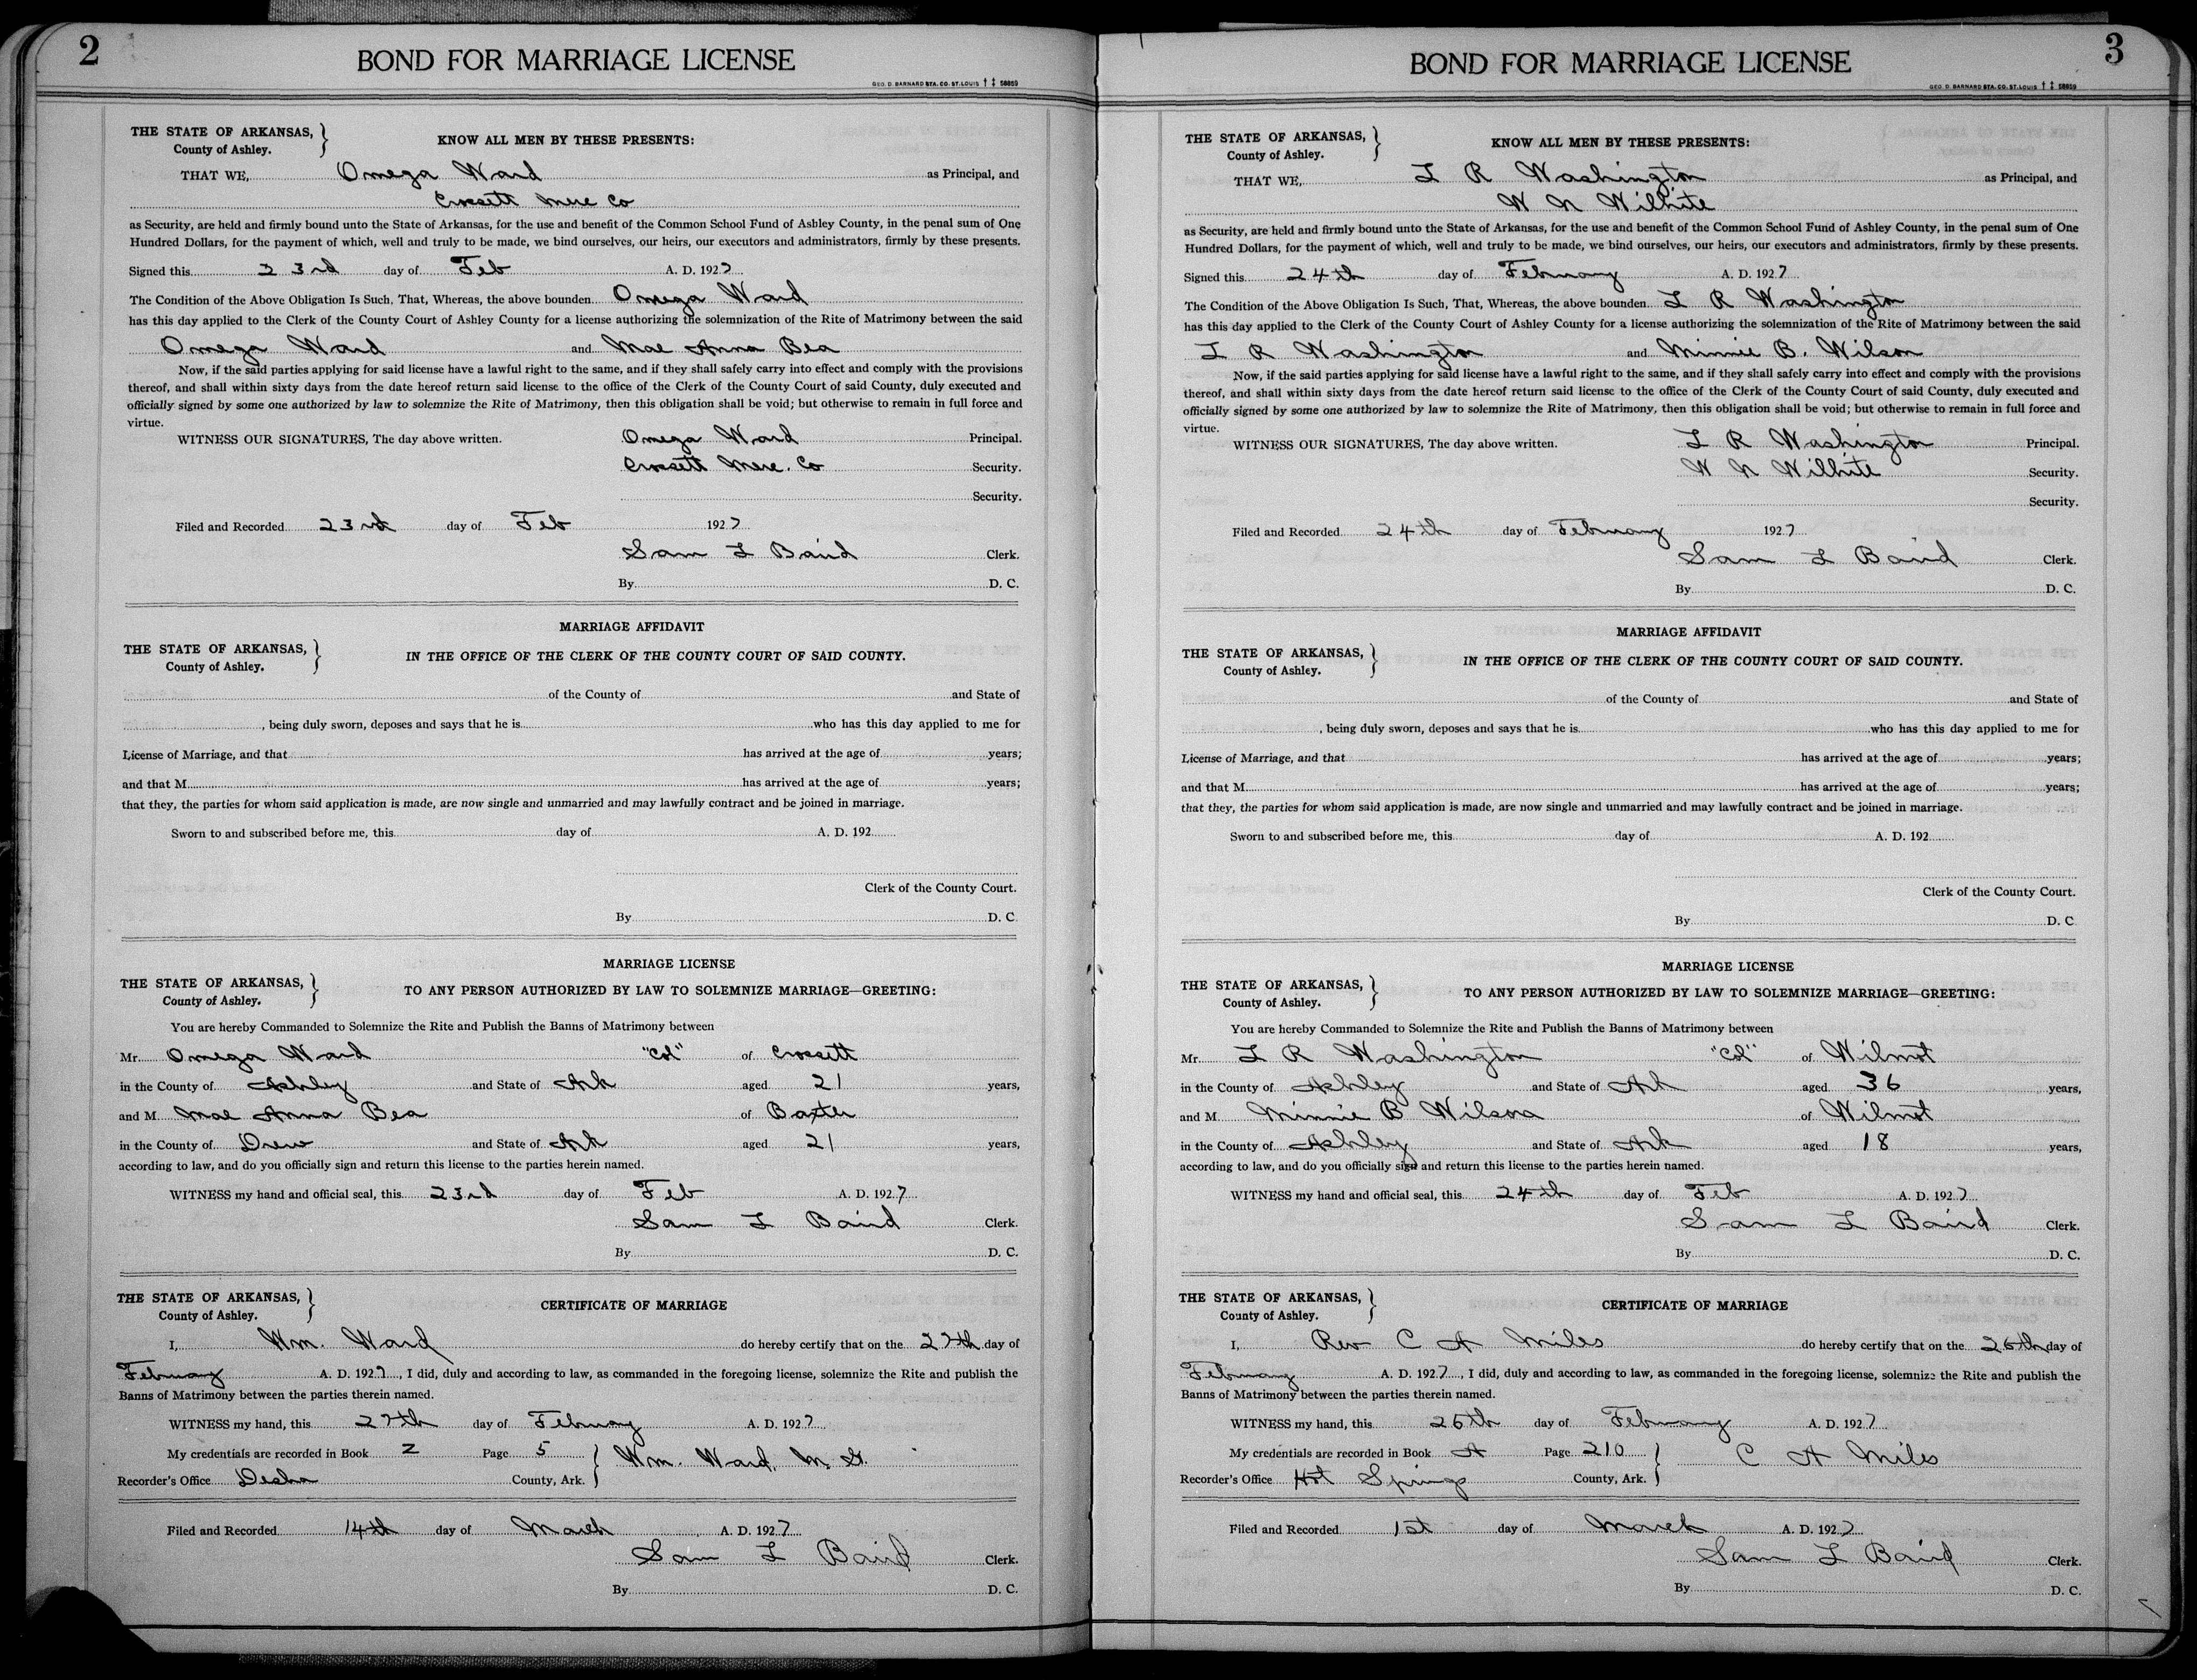 2
BOND FOR MARRIAGE LICENSE
GEO. D. BARNARD STA. CO. ST. LOUIS † ‡ 58859
THE STATE OF ARKANSAS,
County of Ashley.
KNOW ALL MEN BY THESE PRESENTS:
THAT WE, Omega Ward as Principal, and
Crossett Merc Co
as Security, are held and firmly bound unto the State of Arkansas, for the use and benefit of the Common School Fund of Ashley County, in the penal sum of One
Hundred Dollars, for the payment of which, well and truly to be made, we bind ourselves, our heirs, our executors and administrators, firmly by these presents.
Signed this 23rd day of Feb A. D. 1927
The Condition of the Above Obligation Is Such, That, Whereas, the above bounden Omega Ward
has this day applied to the Clerk of the County Court of Ashley County for a license authorizing the solemnization of the Rite of Matrimony between the said
Omega Ward and Mae Anna Bea
Now, if the said parties applying for said license have a lawful right to the same, and if they shall safely carry into effect and comply with the provisions
thereof, and shall within sixty days from the date hereof return said license to the office of the Clerk of the County Court of said County, duly executed and
officially signed by some one authorized by law to solemnize the Rite of Matrimony, then this obligation shall be void; but otherwise to remain in full force and
virtue.
WITNESS OUR SIGNATURES, The day above written. Omega Ward Principal.
Crossett Merc. Co Security.
Security.
Filed and Recorded 23rd day of Feb 1927
Sam L Baird Clerk.
By D. C.
MARRIAGE AFFIDAVIT
THE STATE OF ARKANSAS,
County of Ashley.
IN THE OFFICE OF THE CLERK OF THE COUNTY COURT OF SAID COUNTY.
of the County of and State of
, being duly sworn, deposes and says that he is who has this day applied to me for
License of Marriage, and that has arrived at the age of years;
and that M has arrived at the age of years;
that they, the parties for whom said application is made, are now single and unmarried and may lawfully contract and be joined in marriage.
Sworn to and subscribed before me, this day of A. D. 192
Clerk of the County Court.
By D. C.
MARRIAGE LICENSE
THE STATE OF ARKANSAS,
County of Ashley.
TO ANY PERSON AUTHORIZED BY LAW TO SOLEMNIZE MARRIAGE—GREETING:
You are hereby Commanded to Solemnize the Rite and Publish the Banns of Matrimony between
Mr. Omega Ward "Col" of Crossett
in the County of Ashley and State of Ark aged 21 years,
and M Mae Anna Bea of Baxter
in the County of Drew and State of Ark aged 21 years,
according to law, and do you officially sign and return this license to the parties herein named.
WITNESS my hand and official seal, this 23rd day of Feb A. D. 1927
Sam L Baird Clerk.
By D. C.
THE STATE OF ARKANSAS,
County of Ashley.
CERTIFICATE OF MARRIAGE
I, Wm. Ward do hereby certify that on the 27th day of
February A. D. 1927, I did, duly and according to law, as commanded in the foregoing license, solemnize the Rite and publish the
Banns of Matrimony between the parties therein named.
WITNESS my hand, this 27th day of February A. D. 1927
My credentials are recorded in Book 2 Page 5
Wm. Ward, M. G.
Recorder's Office Desha County, Ark.
Filed and Recorded 14th day of March A. D. 1927
Sam L Baird Clerk.
By D. C.
3
BOND FOR MARRIAGE LICENSE
GEO. D. BARNARD STA. CO. ST. LOUIS † ‡ 58859
THE STATE OF ARKANSAS,
County of Ashley.
KNOW ALL MEN BY THESE PRESENTS:
THAT WE, L R Washington as Principal, and
W N Wilhite
as Security, are held and firmly bound unto the State of Arkansas, for the use and benefit of the Common School Fund of Ashley County, in the penal sum of One
Hundred Dollars, for the payment of which, well and truly to be made, we bind ourselves, our heirs, our executors and administrators, firmly by these presents.
Signed this 24th day of February A. D. 1927
The Condition of the Above Obligation Is Such, That, Whereas, the above bounden L R Washington
has this day applied to the Clerk of the County Court of Ashley County for a license authorizing the solemnization of the Rite of Matrimony between the said
L R Washington and Minnie B. Wilson
Now, if the said parties applying for said license have a lawful right to the same, and if they shall safely carry into effect and comply with the provisions
thereof, and shall within sixty days from the date hereof return said license to the office of the Clerk of the County Court of said County, duly executed and
officially signed by some one authorized by law to solemnize the Rite of Matrimony, then this obligation shall be void; but otherwise to remain in full force and
virtue.
WITNESS OUR SIGNATURES, The day above written. L R Washington Principal.
W N Wilhite Security.
Security.
Filed and Recorded 24th day of February 1927
Sam L Baird Clerk.
By D. C.
MARRIAGE AFFIDAVIT
THE STATE OF ARKANSAS,
County of Ashley.
IN THE OFFICE OF THE CLERK OF THE COUNTY COURT OF SAID COUNTY.
of the County of and State of
, being duly sworn, deposes and says that he is who has this day applied to me for
License of Marriage, and that has arrived at the age of years;
and that M has arrived at the age of years;
that they, the parties for whom said application is made, are now single and unmarried and may lawfully contract and be joined in marriage.
Sworn to and subscribed before me, this day of A. D. 192
Clerk of the County Court.
By D. C.
MARRIAGE LICENSE
THE STATE OF ARKANSAS,
County of Ashley.
TO ANY PERSON AUTHORIZED BY LAW TO SOLEMNIZE MARRIAGE—GREETING:
You are hereby Commanded to Solemnize the Rite and Publish the Banns of Matrimony between
Mr. L R Washington "Col" of Wilmot
in the County of Ashley and State of Ark aged 36 years,
and M Minnie B Wilson of Wilmot
in the County of Ashley and State of Ark aged 18 years,
according to law, and do you officially sign and return this license to the parties herein named.
WITNESS my hand and official seal, this 24th day of Feb A. D. 1927
Sam L Baird Clerk.
By D. C.
THE STATE OF ARKANSAS,
County of Ashley.
CERTIFICATE OF MARRIAGE
I, Rev C A Miles do hereby certify that on the 26th day of
February A. D. 1927, I did, duly and according to law, as commanded in the foregoing license, solemnize the Rite and publish the
Banns of Matrimony between the parties therein named.
WITNESS my hand, this 26th day of February A. D. 1927
My credentials are recorded in Book A Page 210
C A Miles
Recorder's Office Hot Springs County, Ark.
Filed and Recorded 1st day of March A. D. 1927
Sam L Baird Clerk.
By D. C.